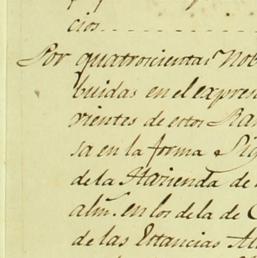 cios
Por quatrocientas Nob
buidas en el expres
rientes de estos Ra
sa en la forma Sig
de la Hazienda de
alm. en los de la de C
de las Estancias